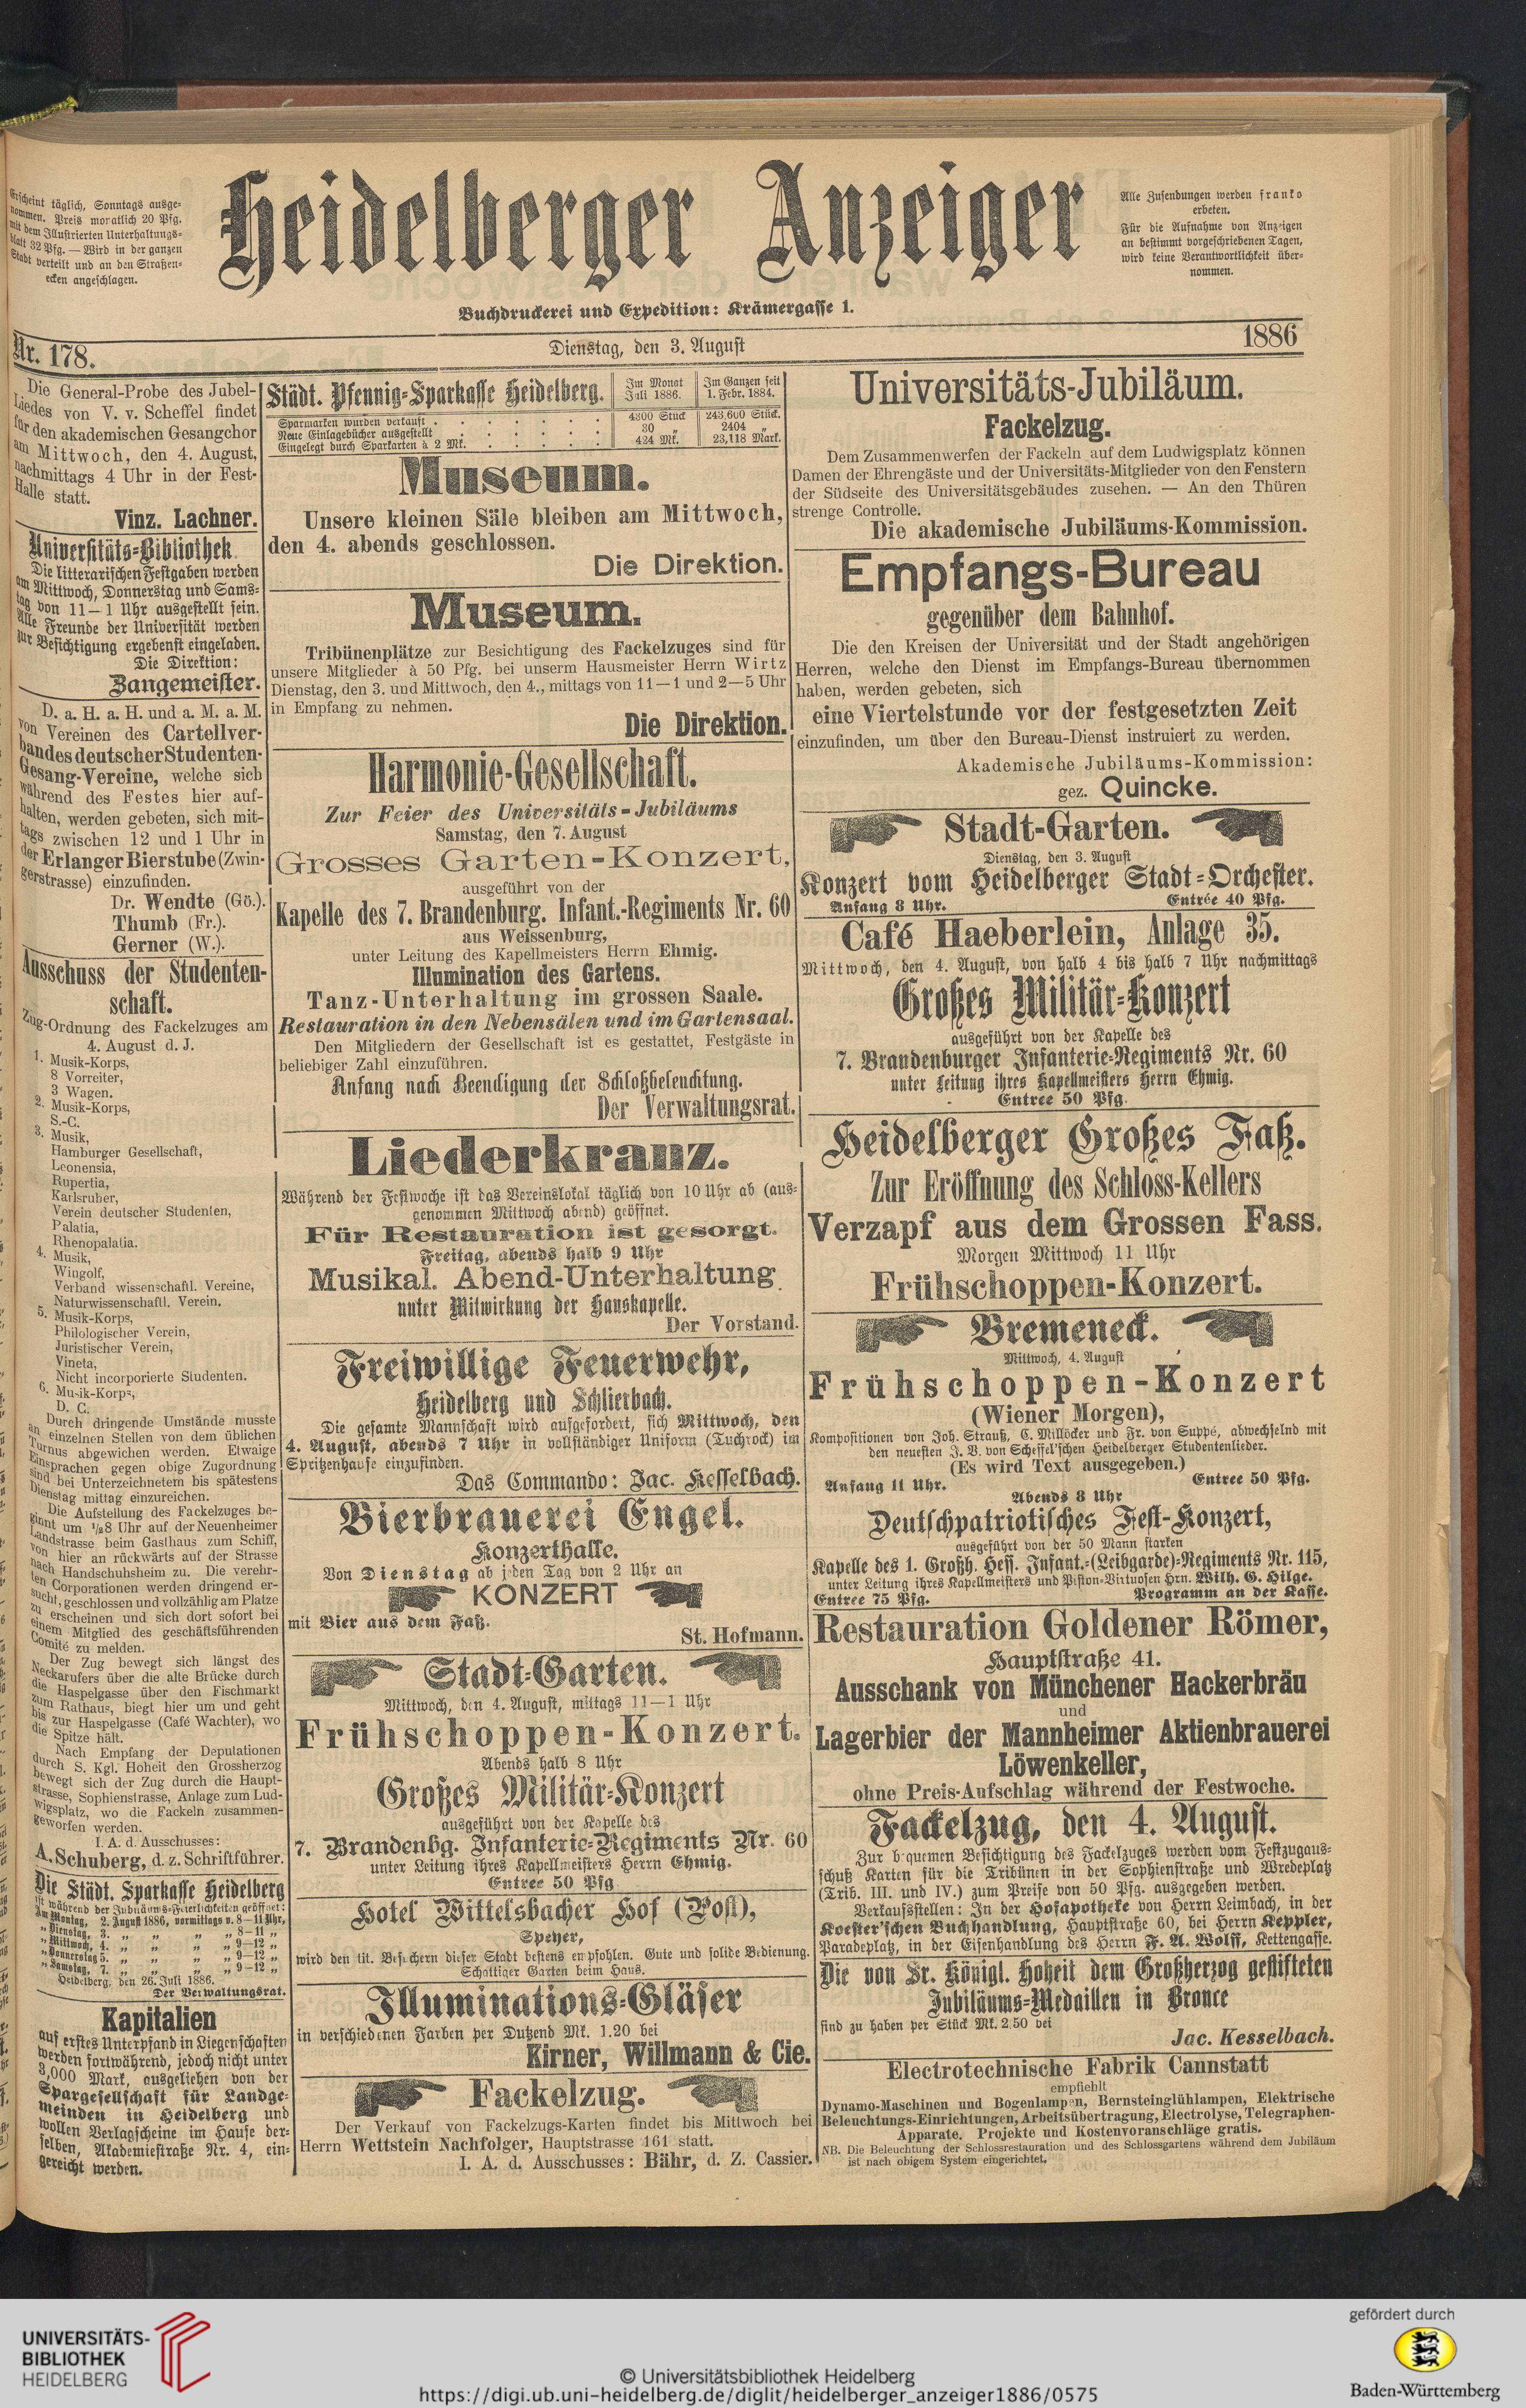 Erscheint täglich, Sonntags ausge-
nommen. Preis monatlich 20 Pfg.
mit dem Illustrierten Unterhaltungs-
blatt 32 Pfg. — Wird in der ganzen
Stadt verteilt und an den Straßen-
ecken angeschlagen.
Heidelberger Anzeiger
Alle Zusendungen werden franko
erbeten.
Für die Aufnahme von Anzeigen
an bestimmt vorgeschriebenen Tagen,
wird keine Verantwortlichkeit über-
nommen.
Buchdruckerei und Expedition: Krämergasse 1.
Nr. 178.
Dienstag, den 3. August
1886
Die General-Probe des Jubel-
Liedes von V. v. Scheffel findet
für den akademischen Gesangchor
am Mittwoch, den 4. August,
nachmittags 4 Uhr in der Fest-
Halle statt.
Vinz. Lachner.
Universitäts-Bibliothek.
Die litterarischen Festgaben werden
am Mittwoch, Donnerstag und Sams-
tag von 11—1 Uhr ausgestellt sein.
Alle Freunde der Universität werden
zur Besichtigung ergebenst eingeladen.
Die Direktion:
Zangemeister.
D. a. H. a. H. und a. M. a. M.
von Vereinen des Cartellver-
bandes deutscher Studenten-
Gesang-Vereine, welche sich
während des Festes hier auf-
halten, werden gebeten, sich mit-
tags zwischen 12 und 1 Uhr in
der Erlanger Bierstube (Zwin-
gerstrasse) einzufinden.
Dr. Wendte (Gö.).
Thumb (Fr.).
Gerner (W.).
Ausschuss der Studenten-
schaft.
Zug-Ordnung des Fackelzuges am
4. August d. J.
1. Musik-Korps,
8 Vorreiter,
3 Wagen.
2. Musik-Korps,
S.-C.
3. Musik,
Hamburger Gesellschaft,
Leonensia,
Rupertia,
Karlsruher,
Verein deutscher Studenten,
Palatia,
Rhenopalatia.
4. Musik,
Wingolf,
Verband wissenschaftl. Vereine,
Naturwissenschaftl. Verein.
5. Musik-Korps,
Philologischer Verein,
Juristischer Verein,
Vineta,
Nicht incorporierte Studenten.
6. Musik-Korps,
D. C.
Durch dringende Umstände musste
an einzelnen Stellen von dem üblichen
Turnus abgewichen werden. Etwaige
Einsprachen gegen obige Zugordnung
sind bei Unterzeichnetem bis spätestens
Dienstag mittag einzureichen.
Die Aufstellung des Fackelzuges be-
ginnt um 1/28 Uhr auf der Neuenheimer
Landstrasse beim Gasthaus zum Schiff,
von hier an rückwärts auf der Strasse
nach Handschuhsheim zu. Die verehr-
ten Corporationen werden dringend er-
sucht, geschlossen und vollzählig am Platze
zu erscheinen und sich dort sofort bei
einem Mitglied des geschäftsführenden
Comité zu melden.
Der Zug bewegt sich längst des
Neckarufers über die alte Brücke durch
die Haspelgasse über den Fischmarkt
zum Rathaus, biegt hier um und geht
bis zur Haspelgasse (Café Wachter), wo
die Spitze hält.
Nach Empfang der Deputationen
durch S. Kgl. Hoheit den Grossherzog
bewegt sich der Zug durch die Haupt-
strasse, Sophienstrasse, Anlage zum Lud-
wigsplatz, wo die Fackeln zusammen-
geworfen werden.
I. A. d. Ausschusses:
A. Schuberg, d. z. Schriftführer.
Die Städt. Sparkasse Heidelberg
ist während der Jubiläums-Feierlichkeiten geöffnet:
Am Montag, 2. August 1886, vormittags v. 8—11 Uhr,
„ Dienstag, 3. „ „ „ „ 8—11 „
„ Mittwoch, 4. „ „ „ „ 9—12 „
„ Donnerstag 5. „ „ „ „ 9—12 „
„ Samstag, 7. „ „ „ „ 9—12 „
Heidelberg, den 26. Juli 1886.
Der Verwaltungsrat.
Kapitalien
auf erstes Unterpfand in Liegenschaften
werden fortwährend, jedoch nicht unter
3,000 Mark, ausgeliehen von der
Spargesellschaft für Landge-
meinden in Heidelberg und
wollen Verlagscheine im Hause der-
selben, Akademiestraße Nr. 4, ein-
gereicht werden.
Städt. Pfennig-Sparkasse Heidelberg.
Im Monat Juli 1886.
Im Ganzen seit 1. Febr. 1884.
Sparmarken wurden verkauft . . . . . . 4300 Stück 243,600 Stück.
Neue Einlagebücher ausgestellt . . . . . . 30 „ 2404 „
Eingelegt durch Sparkarten à 2 Mk. . . . . . 424 Mk. 23,118 Mark.
Museum.
Unsere kleinen Säle bleiben am Mittwoch,
den 4. abends geschlossen.
Die Direktion.
Museum.
Tribünenplätze zur Besichtigung des Fackelzuges sind für
unsere Mitglieder à 50 Pfg. bei unserm Hausmeister Herrn Wirtz
Dienstag, den 3. und Mittwoch, den 4., mittags von 11—1 und 2—5 Uhr
in Empfang zu nehmen.
Die Direktion.
Harmonie-Gesellschaft.
Zur Feier des Universitäts-Jubiläums
Samstag, den 7. August
Grosses Garten-Konzert,
ausgeführt von der
Kapelle des 7. Brandenburg. Infant.-Regiments Nr. 60
aus Weissenburg,
unter Leitung des Kapellmeisters Herrn Ehmig.
Illumination des Gartens.
Tanz-Unterhaltung im grossen Saale.
Restauration in den Nebensälen und im Gartensaal.
Den Mitgliedern der Gesellschaft ist es gestattet, Festgäste in
beliebiger Zahl einzuführen.
Anfang nach Beendigung der Schloßbeleuchtung.
Der Verwaltungsrat.
Liederkranz.
Während der Festwoche ist das Vereinslokal täglich von 10 Uhr ab (aus-
genommen Mittwoch abend) geöffnet.
Für Restauration ist gesorgt.
Freitag, abends halb 9 Uhr
Musikal. Abend-Unterhaltung
unter Mitwirkung der Hauskapelle.
Der Vorstand.
Freiwillige Feuerwehr,
Heidelberg und Schlierbach.
Die gesamte Mannschaft wird aufgefordert, sich Mittwoch, den
4. August, abends 7 Uhr in vollständiger Uniform (Tuchrock) im
Spritzenhause einzufinden.
Das Commando: Jac. Kesselbach.
Bierbrauerei Engel.
Konzerthalle.
Von Dienstag ab jeden Tag von 2 Uhr an
KONZERT
mit Bier aus dem Faß.
St. Hofmann.
Stadt-Garten.
Mittwoch, den 4. August, mittags 11—1 Uhr
Frühschoppen-Konzert.
Abends halb 8 Uhr
Großes Militär-Konzert
ausgeführt von der Kapelle des
7. Brandenbg. Infanterie-Regiments Nr. 60
unter Leitung ihres Kapellmeisters Herrn Ehmig.
Entree 50 Pfg.
Hotel Wittelsbacher Hof (Post),
Speyer,
wird den tit. Besuchern dieser Stadt bestens empfohlen. Gute und solide Bedienung.
Schattiger Garten beim Haus.
Illuminations-Gläser
in verschiedenen Farben per Dutzend Mk. 1.20 bei
Kirner, Willmann & Cie.
Fackelzug.
Der Verkauf von Fackelzugs-Karten findet bis Mittwoch bei
Herrn Wettstein Nachfolger, Hauptstrasse 161 statt.
I. A. d. Ausschusses: Bähr, d. Z. Cassier.
Universitäts-Jubiläum.
Fackelzug.
Dem Zusammenwerfen der Fackeln auf dem Ludwigsplatz können
Damen der Ehrengäste und der Universitäts-Mitglieder von den Fenstern
der Südseite des Universitätsgebäudes zusehen. — An den Thüren
strenge Controlle.
Die akademische Jubiläums-Kommission.
Empfangs-Bureau
gegenüber dem Bahnhof.
Die den Kreisen der Universität und der Stadt angehörigen
Herren, welche den Dienst im Empfangs-Bureau übernommen
haben, werden gebeten, sich
eine Viertelstunde vor der festgesetzten Zeit
einzufinden, um über den Bureau-Dienst instruiert zu werden.
Akademische Jubiläums-Kommission:
gez. Quincke.
Stadt-Garten.
Dienstag, den 3. August
Konzert vom Heidelberger Stadt-Orchester.
Anfang 8 Uhr.
Entrée 40 Pfg.
Café Haeberlein, Anlage 35.
Mittwoch, den 4. August, von halb 4 bis halb 7 Uhr nachmittags
Großes Militär-Konzert
ausgeführt von der Kapelle des
7. Brandenburger Infanterie-Regiments Nr. 60
unter Leitung ihres Kapellmeisters Herrn Ehmig.
Entree 50 Pfg.
Heidelberger Großes Faß.
Zur Eröffnung des Schloss-Kellers
Verzapf aus dem Grossen Fass.
Morgen Mittwoch 11 Uhr
Frühschoppen-Konzert.
Bremeneck.
Mittwoch, 4. August
Frühschoppen-Konzert
(Wiener Morgen),
Kompositionen von Joh. Strauß, C. Millöcker und Fr. von Suppé, abwechselnd mit
den neuesten J. V. von Scheffel'schen Heidelberger Studentenlieder.
(Es wird Text ausgegeben.)
Anfang 11 Uhr.
Entree 50 Pfg.
Abends 8 Uhr
Deutschpatriotisches Fest-Konzert,
ausgeführt von der 50 Mann starken
Kapelle des 1. Großh. Hess. Infant.-(Leibgarde)-Regiments Nr. 115,
unter Leitung ihres Kapellmeisters und Piston-Virtuosen Hrn. Wilh. G. Hilge.
Entree 75 Pfg.
Programm an der Kasse.
Restauration Goldener Römer,
Hauptstraße 41.
Ausschank von Münchener Hackerbräu
und
Lagerbier der Mannheimer Aktienbrauerei
Löwenkeller,
ohne Preis-Aufschlag während der Festwoche.
Fackelzug, den 4. August.
Zur bequemen Besichtigung des Fackelzuges werden vom Festzugaus-
schuß Karten für die Tribünen in der Sophienstraße und Wredeplatz
(Trib. III. und IV.) zum Preise von 50 Pfg. ausgegeben werden.
Verkaufsstellen: In der Hofapotheke von Herrn Leimbach, in der
Koester'schen Buchhandlung, Hauptstraße 60, bei Herrn Keppler,
Paradeplatz, in der Eisenhandlung des Herrn F. A. Wolff, Kettengasse.
Die von Sr. Königl. Hoheit dem Großherzog gestifteten
Jubiläums-Medaillen in Bronce
sind zu haben per Stück Mk. 2.50 bei
Jac. Kesselbach.
Electrotechnische Fabrik Cannstatt
empfiehlt
Dynamo-Maschinen und Bogenlampen, Bernsteinglühlampen, Elektrische
Beleuchtungs-Einrichtungen, Arbeitsübertragung, Electrolyse, Telegraphen-
Apparate. Projekte und Kostenvoranschläge gratis.
NB. Die Beleuchtung der Schlossrestauration und des Schlossgartens während dem Jubiläum
ist nach obigem System eingerichtet.
UNIVERSITÄTS-
BIBLIOTHEK
HEIDELBERG
© Universitätsbibliothek Heidelberg
https://digi.ub.uni-heidelberg.de/diglit/heidelberger_anzeiger1886/0575
gefördert durch
Baden-Württemberg